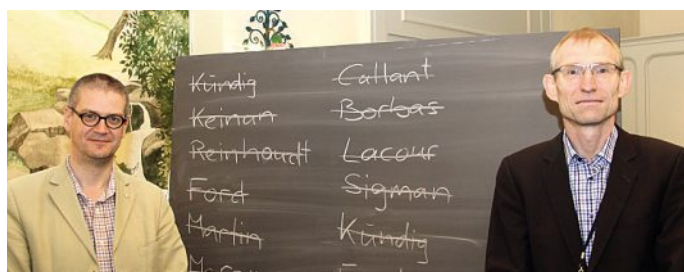 Kündig
Keinan
Reinhoudt
Ford
Martin
Callant
Borbas
Lacour
Sigman
Kündig